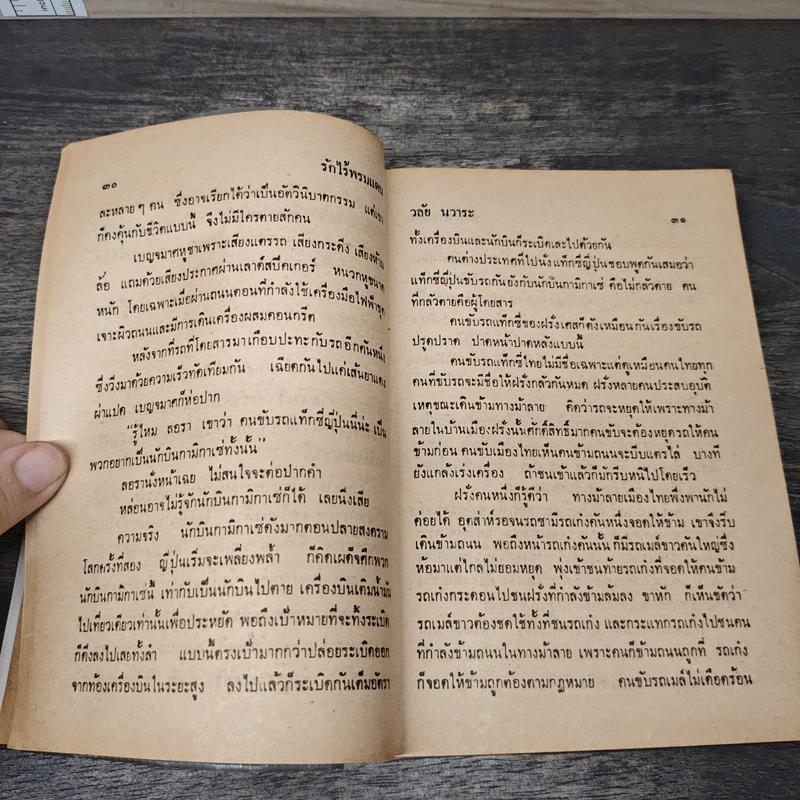 ๓๐
รักไร้พรมแดน
ละหลาย ๆ คน ซึ่งอาจเรียกได้ว่าเป็นอัตวินิบาตกรรม แต่เขา
ก็คงคุ้นกับชีวิตแบบนี้ จึงไม่มีใครตายสักคน
เบญจมาศหูชาเพราะเสียงแตรรถ เสียงกระดิ่ง เสียงห้าม
ล้อ แถมด้วยเสียงประกาศผ่านเลาด์สปีคเกอร์ หนวกหูขนาด
หนัก โดยเฉพาะเมื่อผ่านถนนตอนที่กำลังใช้เครื่องมือไฟฟ้าขุด
เจาะผิวถนนและมีการเดินเครื่องผสมคอนกรีต
หลังจากที่รถที่โดยสารมาเกือบปะทะกับรถอีกคันหนึ่ง
ซึ่งวิ่งมาด้วยความเร็วทัดเทียมกัน เฉียดกันไปแค่เส้นยาแดง
ผ่าแปด เบญจมาศก็ห่อปาก
“รู้ไหม ลอรา เขาว่า คนขับรถแท็กซี่ญี่ปุ่นนี่น่ะ เป็น
พวกอยากเป็นนักบินกามิกาเซ่ทั้งนั้น”
ลอรานั่งหน้าเฉย ไม่สนใจจะต่อปากคำ
หล่อนอาจไม่รู้จักนักบินกามิกาเซ่ก็ได้ เลยนิ่งเสีย
ความจริง นักบินกามิกาเซ่ดังมากตอนปลายสงคราม
โลกครั้งที่สอง ญี่ปุ่นเริ่มจะเพลี่ยงพล้ำ ก็คิดเผด็จศึกพวก
นักบินกามิกาเซ่นี้ เท่ากับเป็นนักบินไปตาย เครื่องบินเติมน้ำมัน
ไปเที่ยวเดียวเท่านั้นเพื่อประหยัด พอถึงเป้าหมายที่จะทิ้งระเบิด
ก็ดิ่งลงไปเลยทั้งลำ แบบนี้ตรงเป้ามากกว่าปล่อยระเบิดออก
จากท้องเครื่องบินในระยะสูง ลงไปแล้วก็ระเบิดกันเต็มอัตรา
วลัย นวาระ
๓๑
ทั้งเครื่องบินและนักบินก็ระเบิดเละไปด้วยกัน
คนต่างประเทศที่ไปนั่งแท็กซี่ญี่ปุ่นชอบพูดกันเสมอว่า
แท็กซี่ญี่ปุ่นขับรถกันยังกับนักบินกามิกาเซ่ คือไม่กลัวตาย คน
ที่กลัวตายคือผู้โดยสาร
คนขับรถแท็กซี่ของฝรั่งเศสก็ดังเหมือนกันเรื่องขับรถ
ปรูดปราด ปาดหน้าปาดหลังแบบนี้
คนขับรถแท็กซี่ไทยไม่มีชื่อเฉพาะแต่ดูเหมือนคนไทยทุก
คนที่ขับรถจะมีชื่อให้ฝรั่งกลัวกันหมด ฝรั่งหลายคนประสบอุบัติ
เหตุขณะเดินข้ามทางม้าลาย คิดว่ารถจะหยุดให้เพราะทางม้า
ลายในบ้านเมืองฝรั่งนั้นศักดิ์สิทธิ์มากคนขับจะต้องหยุดรถให้คน
ข้ามก่อน คนขับเมืองไทยเห็นคนข้ามถนนจะบีบแตรไล่ บางที
ยังแกล้งเร่งเครื่อง ถ้าชนเข้าแล้วก็มักรีบหนีไปโดยเร็ว
ฝรั่งคนหนึ่งก็รู้ดีว่า ทางม้าลายเมืองไทยพึ่งพานักไม่
ค่อยได้ อุตส่าห์รอจนรถซามีรถเก๋งคันหนึ่งจอดให้ข้าม เขาจึงรีบ
เดินข้ามถนน พอถึงหน้ารถเก๋งคันนั้น ก็มีรถเมล์ขาวคันใหญ่ซึ่ง
ห้อมาแต่ไกลไม่ยอมหยุด พุ่งเข้าชนท้ายรถเก๋งที่จอดให้คนข้าม
รถเก๋งกระดอนไปชนฝรั่งที่กำลังข้ามล้มลง ขาหัก ก็เห็นชัดว่า
รถเมล์ขาวต้องชดใช้ทั้งที่ชนรถเก๋ง และกระแทกรถเก๋งไปชนคน
ที่กำลังข้ามถนนในทางม้าลาย เพราะคนก็ข้ามถนนถูกที่ รถเก๋ง
ก็จอดให้ข้ามถูกต้องตามกฎหมาย คนขับรถเมล์ไม่เดือดร้อน